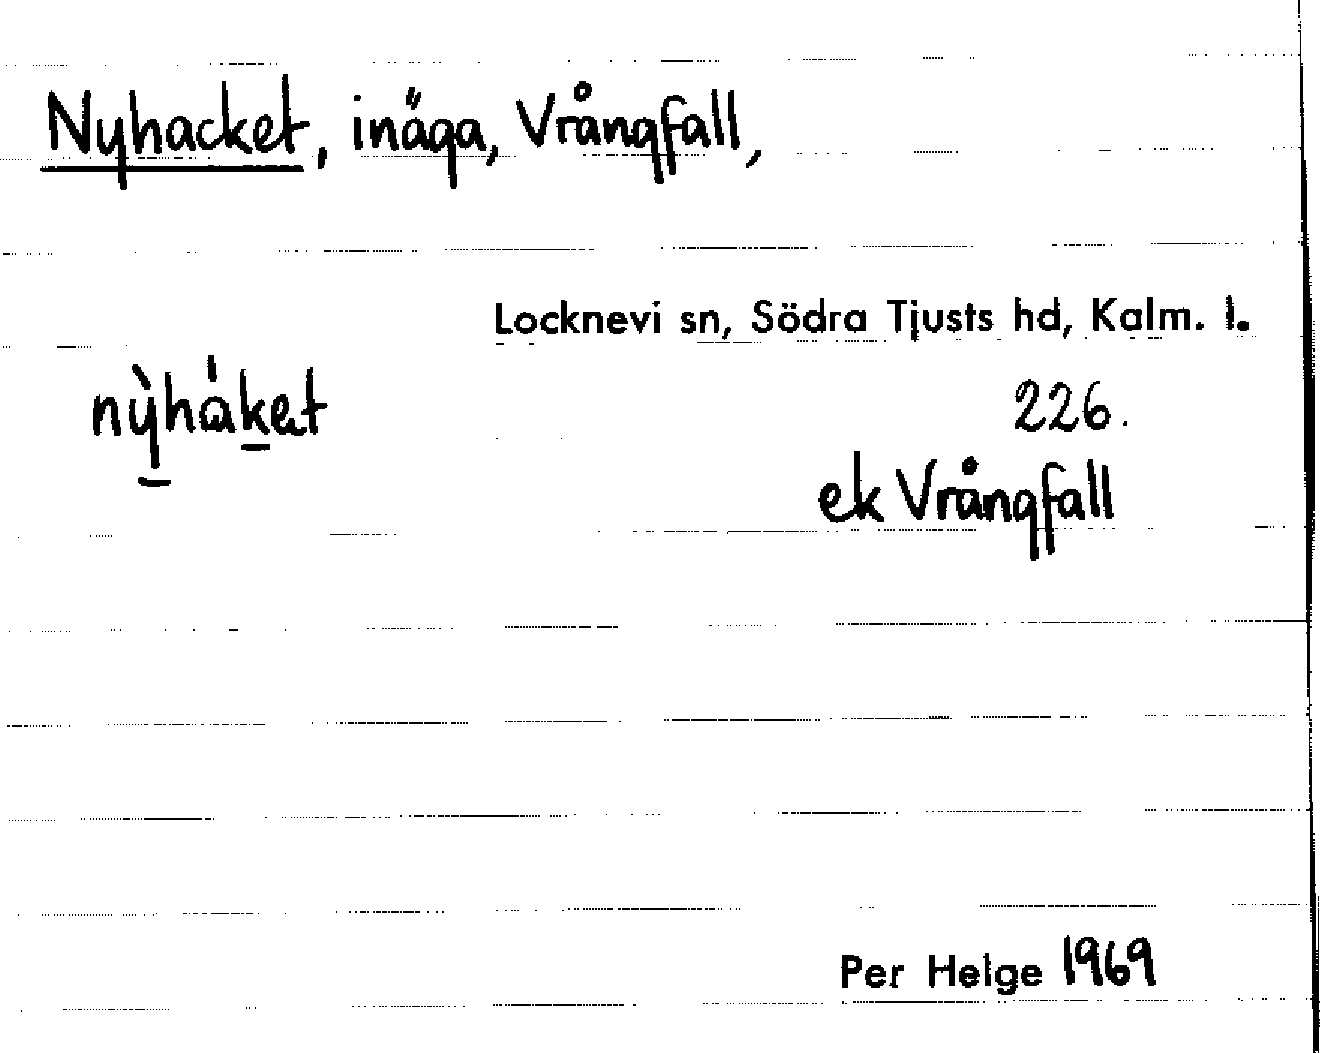 Nyhacket, inäga, Vrångfall,
Locknevi sn, Södra Tjusts hd, Kalm. l.
nỳ̠hȧk̠et
226.
ek Vrångfall
Per Helge 1969